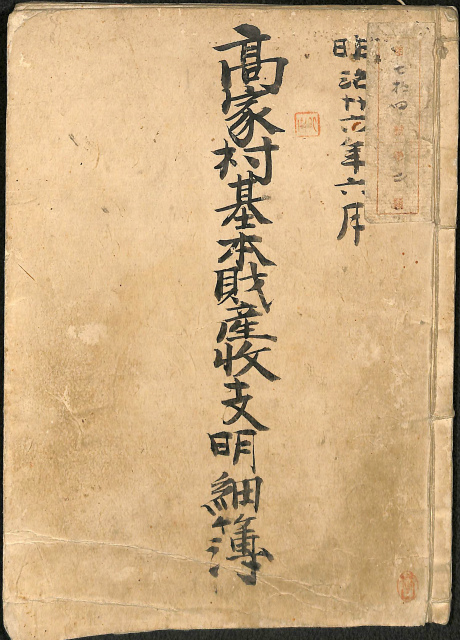 明治廿六年六月
髙家村基本財産收支明細簿